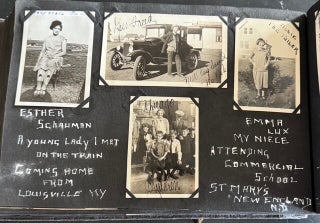 ESTHER
SCHAUMAN
A YOUNG LADY I MET
ON THE TRAIN
COMING HOME
FROM
LOUISVILLE KY
EMMA
LUX
MY NIECE
ATTENDING
COMMERCIAL
SCHOOL
ST MARYS
NEW ENGLAND
N.D